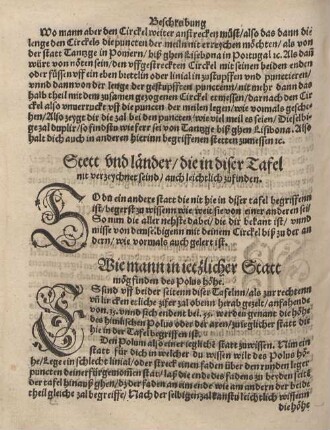 Beschreibung
Wo mann aber den Circkel weiter anstrecken müst/also das dann die
lenge den Circkels die puncten der meilen nit erreychen möchten/ als von
der statt Tantzge in Pomern/ biß ghen Lisebona in Portugal ꝛc. Als dañ
würt von nöten sein/den vffgestreckten Circkel mit seinen beiden enden
oder füssen vff ein eben brettlin oder linial zu stupffen vnd punctieren/
vnnd dann von der lenge der gestupfften puncten/nit mehr dann das
halb theil mit dem zusamen gezogenen Circkel ermessen/ darnach den Circ
kel also vnuerruckt vff die puncten der meilen legen/ wie vomals gesche-
hen/ Also zeygt dir die zal bei den puncten/ wie viel meil es seien/ Dieselbi-
ge zal duplir/so findstu wie ferr sei von Tantzge biß ghen Lisbona. Also
halt dich auch in anderen hierinn begriffenen stetten zumessen ꝛc.
Stett vnd länder/ die in diser Tafel
nit verzeychnet seind/ auch leichtlich zufinden.
OB dn ein andere statt die nit hie in diser tafel begriffenn
ist/begerst zu wissenn wie weit sie von einer anderen sei
So nim die aller nechste dabei/ die dir bekant ist/ vnnd
misse von demselbigenn mit deinem Circkel biß zu der an
dern/ wie vormals auch gelert ist.
Wie mann in ietzlicher Statt
mög finden des Polus höhe.
ES sind vff beider seitenn diser Tafelnn/ als zur rechtenn
vñ lincken etliche zifer zal obenn herab gezelt/ anfahende
von. 55. vnnd sich endent bei. 35. werden genant die höhe
des himlischen Polus oder der axen/ zu ieglicher statt die
hie in der Tafel begriffen ist.
Den Polum also einer iegliche statt zuwissen. Nim ein
statt für dich in welcher du wissen wilt des Polus hö-
he/ Lege ein schlecht linial/ oder streck einen faden über den runden
puncten deiner fürgenom̃en statt/ laß die ende des fadens zu beiden seiten
der tafel hinauß ghen/ dz der faden an eim ende wie am andern der beide
theil gleiche zal begreiffe/ Nach der selbigen zal kanstu leichtlich wissenn
die höhe